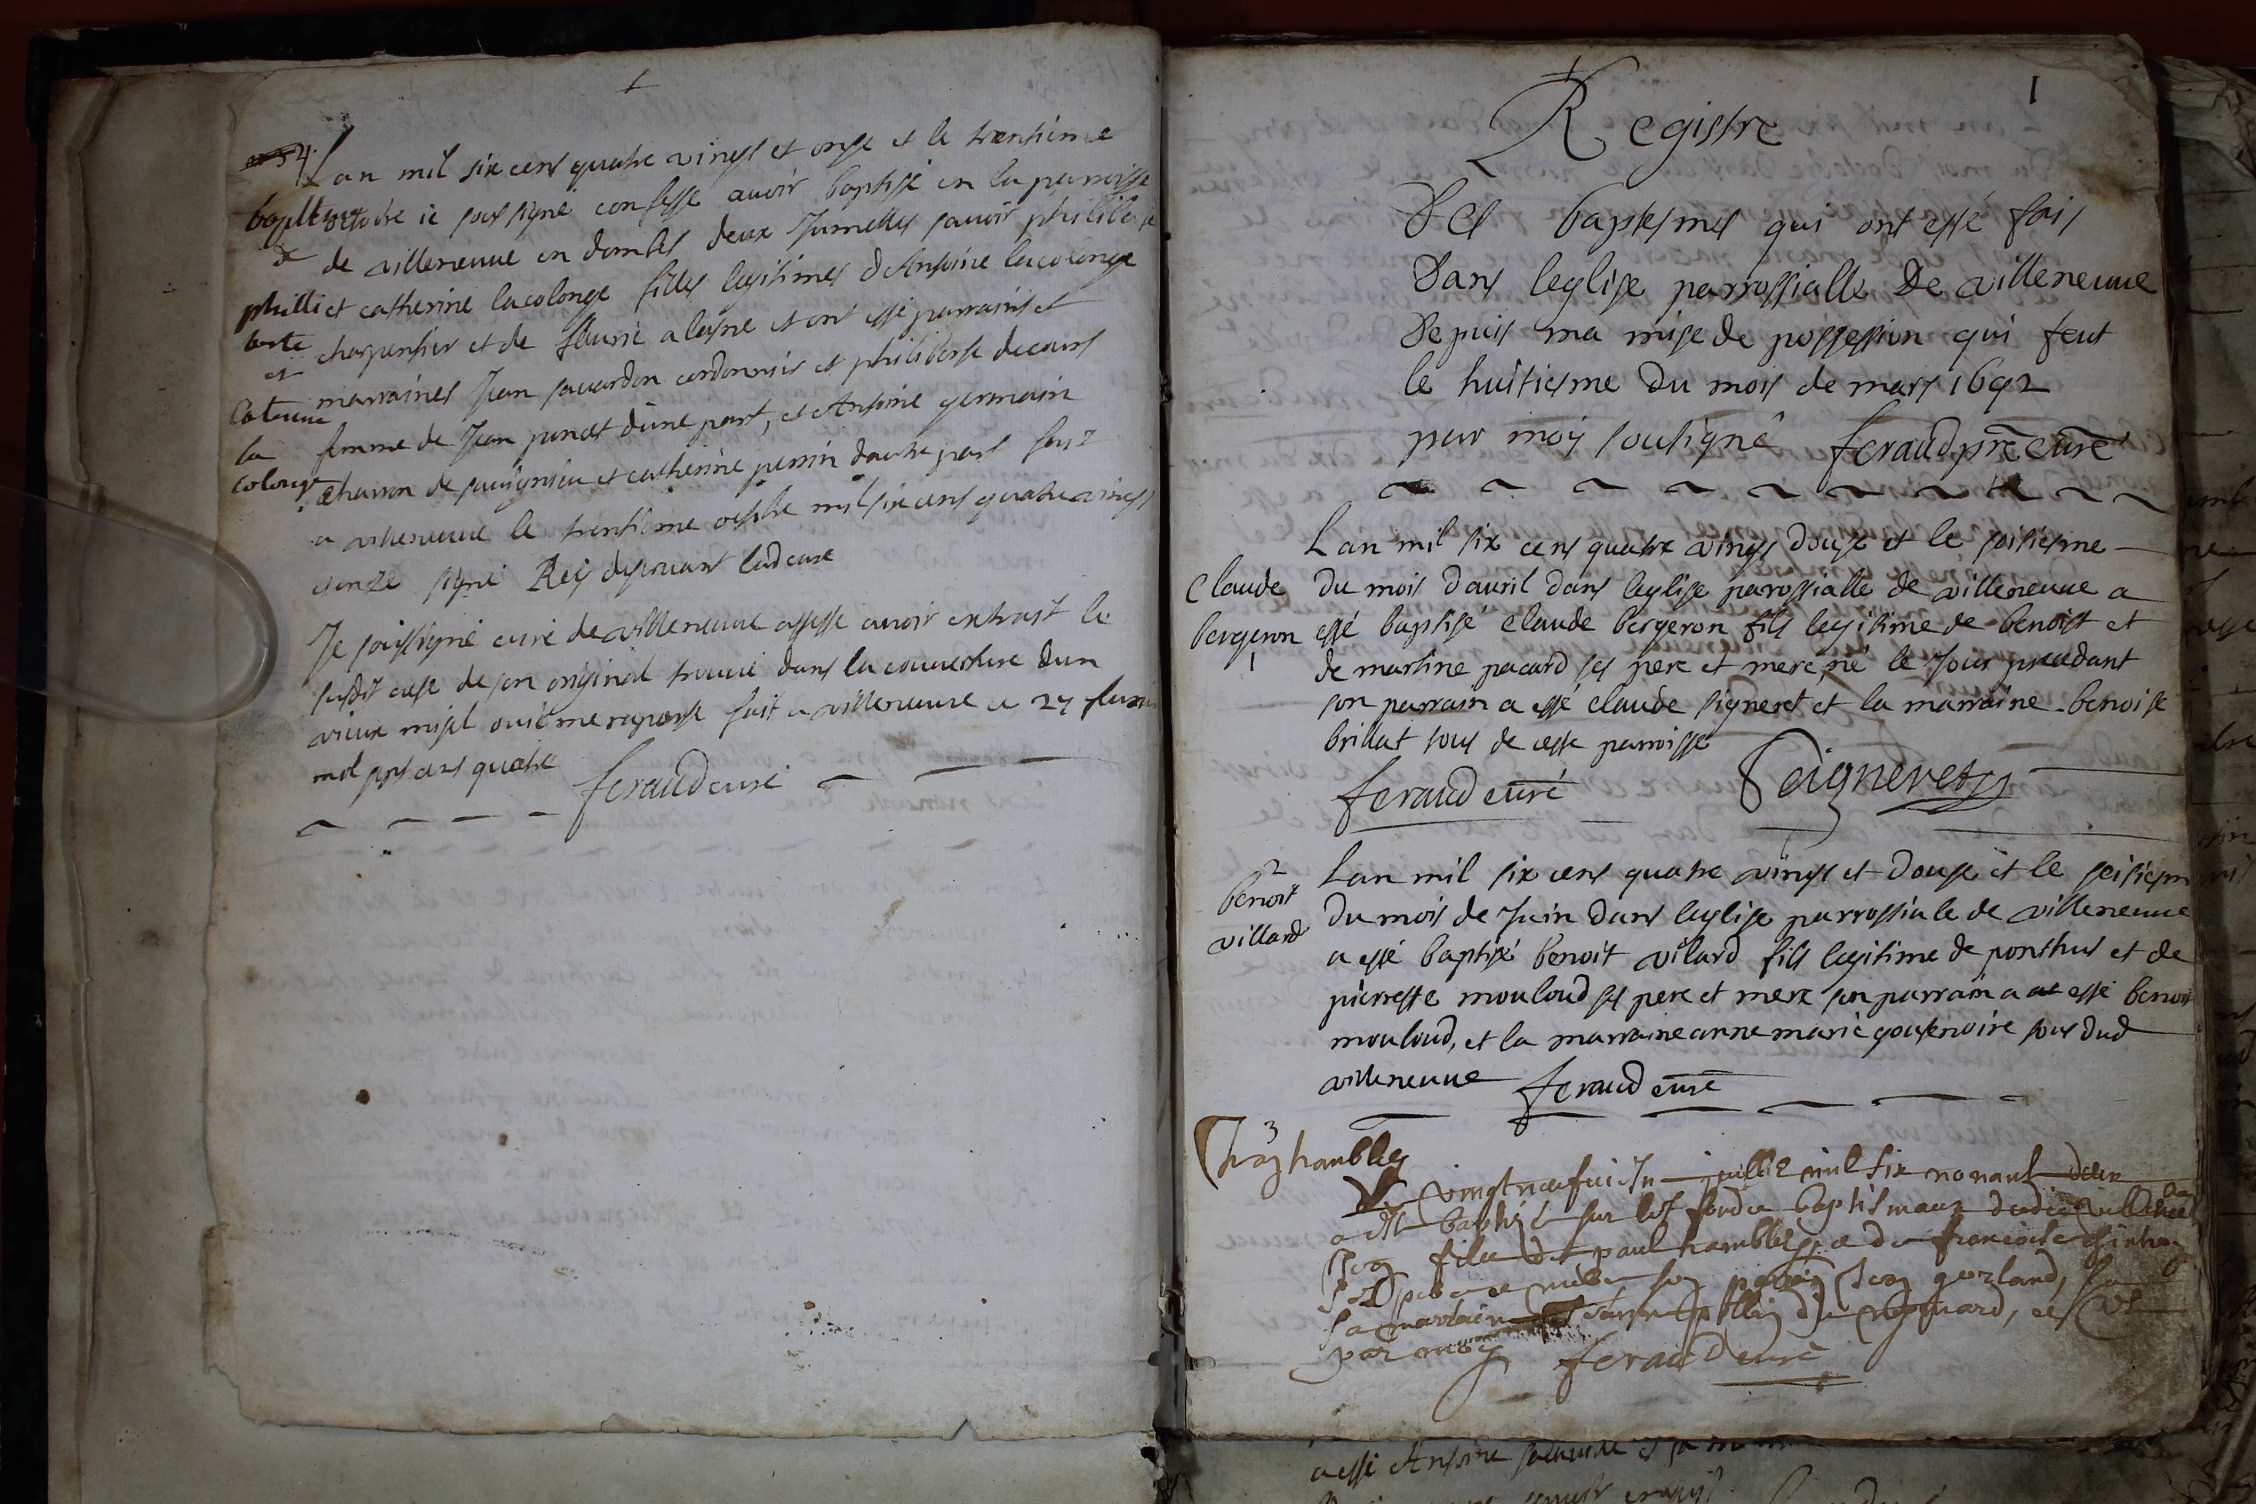 Lan mil six cens quatre vingts et onze et le trentieme
octobre ie soussigné confesse avoir baptisé en la parroisse
de villeneuve en dombes deux Jumelles savoir philiberte
et catherine lacolonge filles legitimes d'Antoine lacolonge
charpentier et de fleurie alasne et ont esté parrains et
marraines Jean savardon cordonnier et philiberte decours
femme de Jean poncet dune part, et Antoine germain
charron de savignieu et catherine perrin dautre part fait
a villeneuve le trentieme octobre mil six cens quatre vings
et onze signé Rey desservant lad cure
baptesme
de
philli
berte
et
Caterine
la
colonge
Je soussigné curé de villeneuve atteste avoir extrait le
susdit acte de son original trouvé dans la couverture dun
vieux missel fait a villeneuve ce 27 fevrier
mil sept cens quatre
feraud curé
1
Registre
Des baptesmes qui ont esté fais
Dans leglise parrossialle De villeneuve
Depuis ma mise de possession qui feut
le huitiesme Du mois de mars 1692
par moy soussigné feraud prē curé
Lan mil six cens quatre vings douze et le seisiesme
Du mois davril dans leglise parossialle de villeneuve a
esté baptisé claude bergeron fils legitime de benoist et
de martine pacard ses pere et mere, né le Jour precedant
son parrain a esté claude signeret et la marraine benoise
brillat tous de ceste parroisse
Claude
bergeron
1
feraud curé Seigneret
2
benoit
villard
Lan mil six cens quatre vings et douze et le seisiesme
Du mois de Juin dans leglise parrossiale de villeneuve
a esté baptisé benoit vilard fils legitime de ponthus et de
pierrette mouloud ses pere et mere son parrain a esté benoit
mouloud, et la marraine anne marie goutenoire tous dud
villeneuve feraud curé
3
Jean tranbles
Le vingt neufvie Jn juillet mil six nonant deux
a esté baptisé sur les fondz baptismaux dudict Villeneuve
Jean filz de paul tranbles et de francoise
pere et mere son parrin Jean gozland, sa
la marraine
par moy feraud curé
a esté Antoine